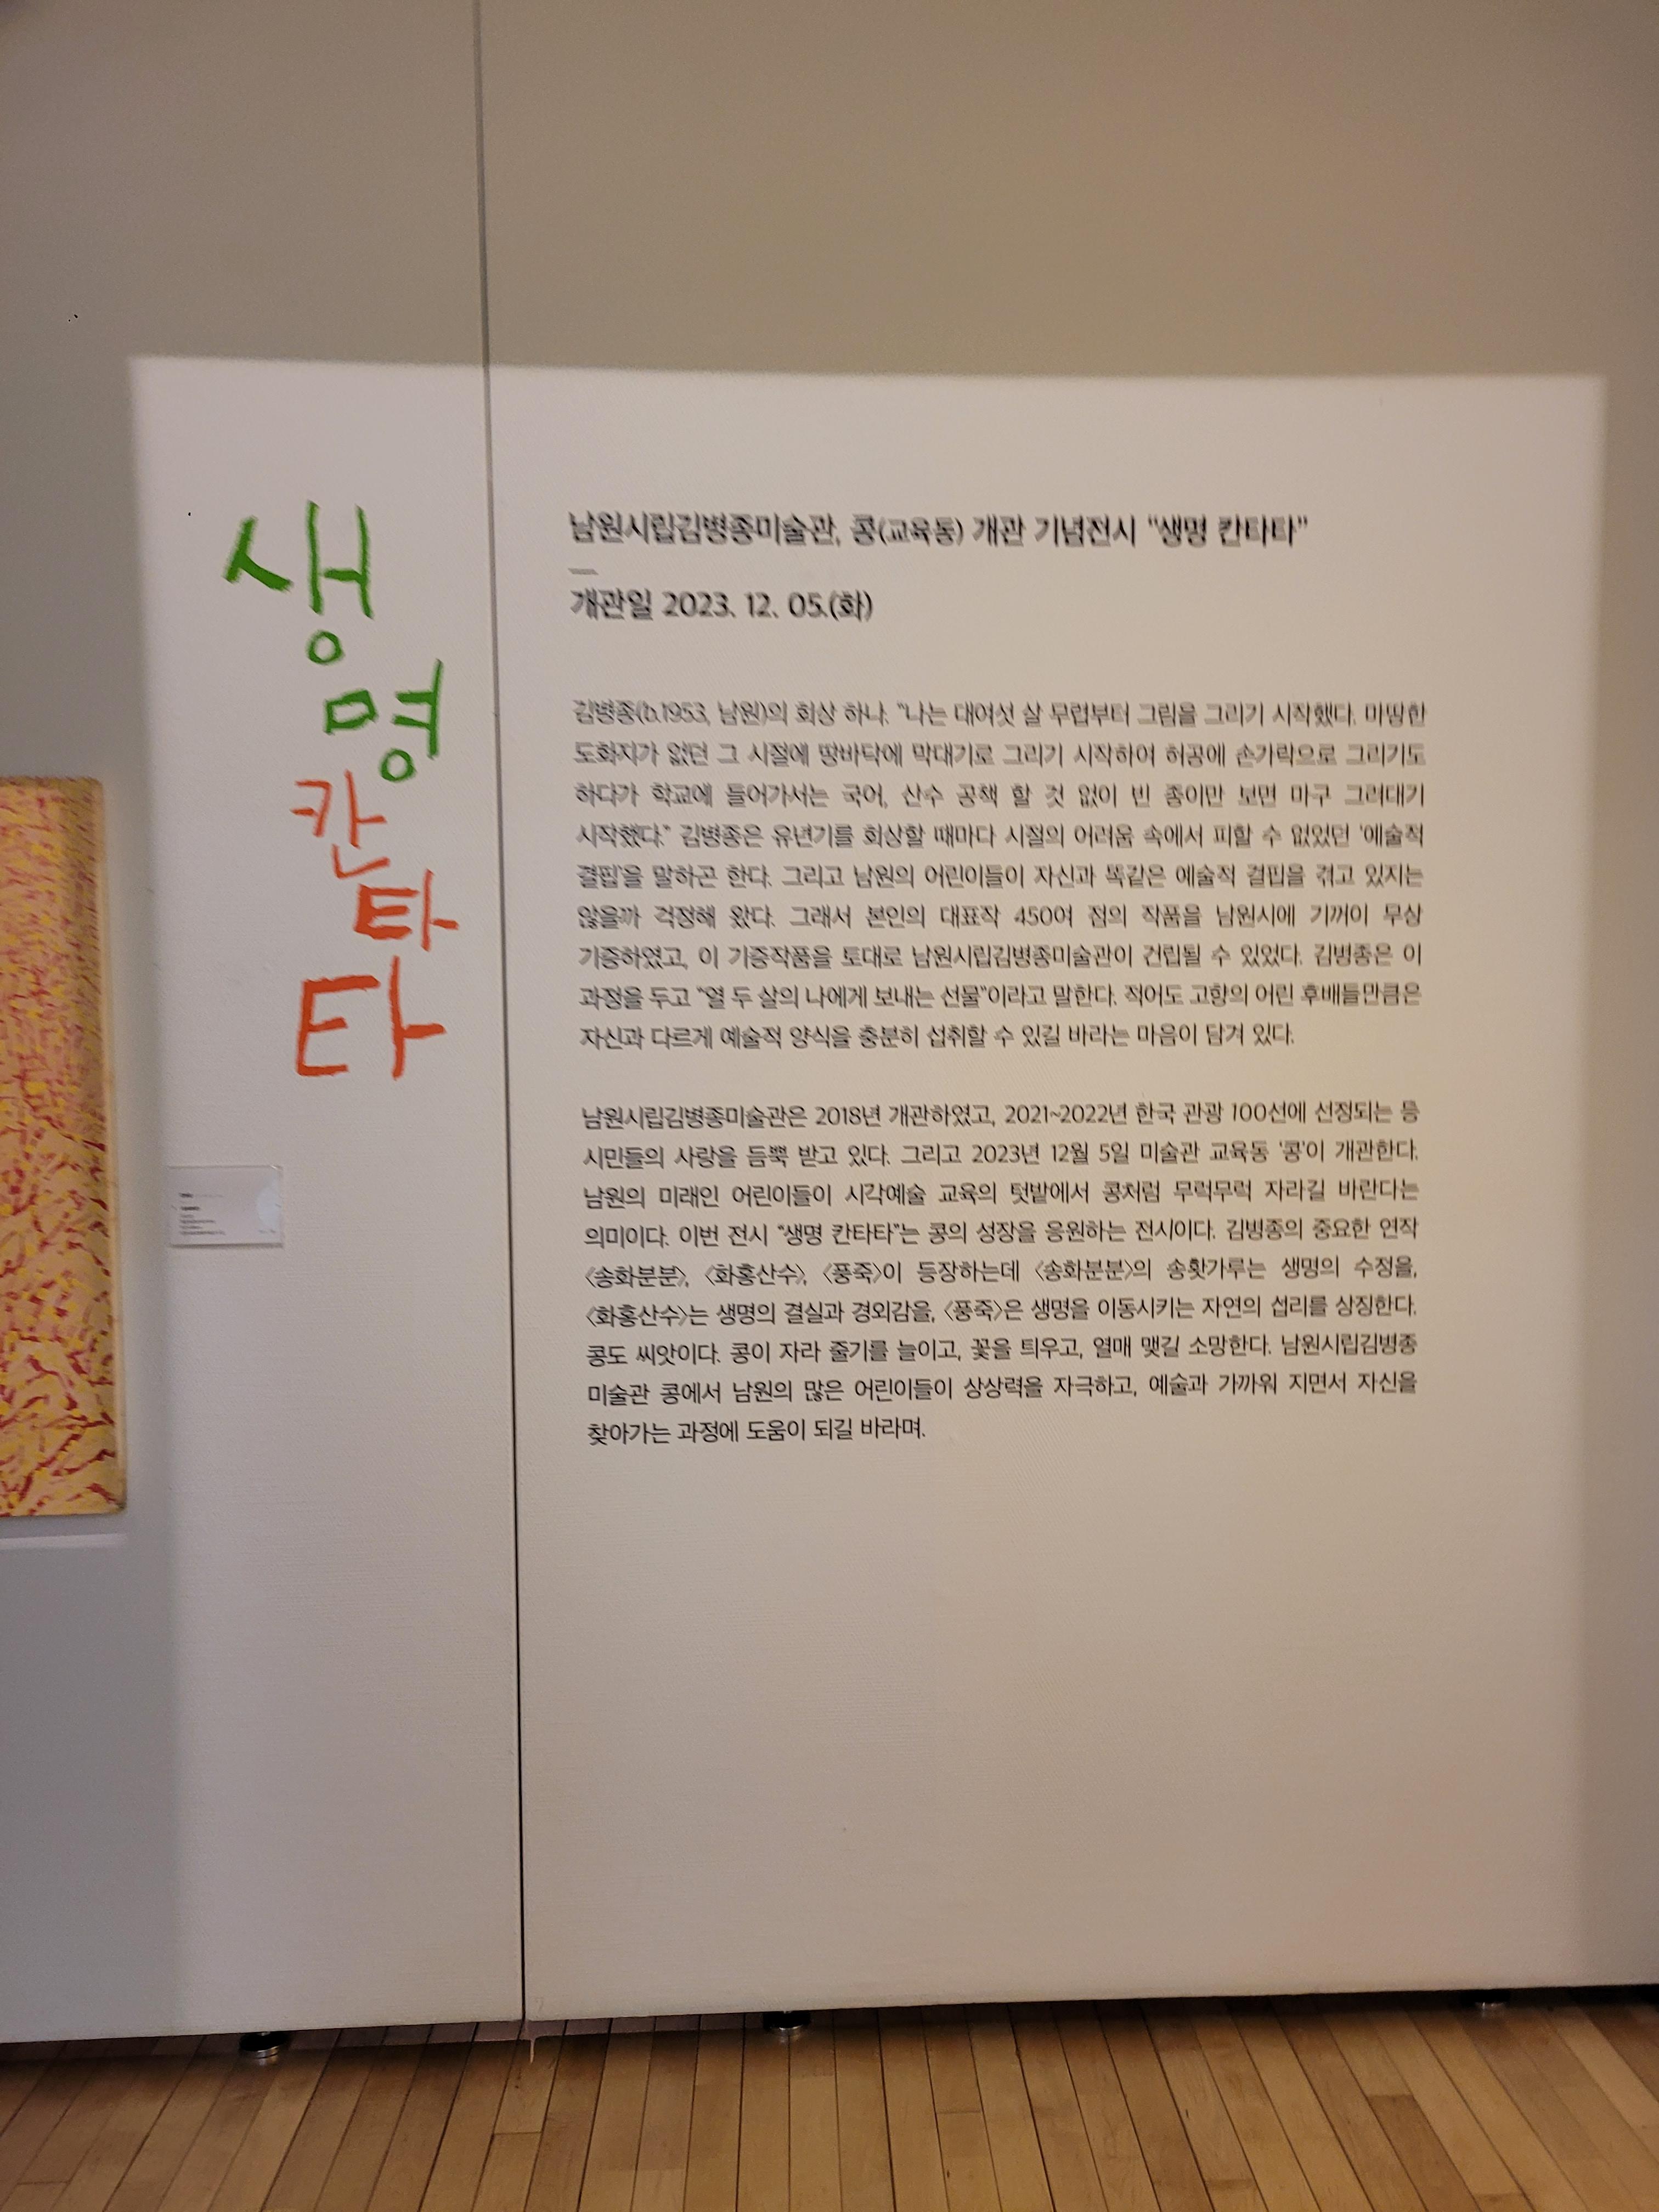 생
명
칸
타
타
남원시립김병종미술관, 콩(교육동) 개관 기념전시 “생명 칸타타”
개관일 2023. 12. 05.(화)
김병종(b.1953, 남원)의 회상 하나. “나는 대여섯 살 무렵부터 그림을 그리기 시작했다. 마땅한
도화지가 없던 그 시절에 땅바닥에 막대기로 그리기 시작하여 허공에 손가락으로 그리기도
하다가 학교에 들어가서는 국어, 산수 공책 할 것 없이 빈 종이만 보면 마구 그려대기
시작했다.” 김병종은 유년기를 회상할 때마다 시절의 어려움 속에서 피할 수 없었던 ‘예술적
결핍’을 말하곤 한다. 그리고 남원의 어린이들이 자신과 똑같은 예술적 결핍을 겪고 있지는
않을까 걱정해 왔다. 그래서 본인의 대표작 450여 점의 작품을 남원시에 기꺼이 무상
기증하였고, 이 기증작품을 토대로 남원시립김병종미술관이 건립될 수 있었다. 김병종은 이
과정을 두고 “열 두 살의 나에게 보내는 선물”이라고 말한다. 적어도 고향의 어린 후배들만큼은
자신과 다르게 예술적 양식을 충분히 섭취할 수 있길 바라는 마음이 담겨 있다.
남원시립김병종미술관은 2018년 개관하였고, 2021~2022년 한국 관광 100선에 선정되는 등
시민들의 사랑을 듬뿍 받고 있다. 그리고 2023년 12월 5일 미술관 교육동 ‘콩’이 개관한다.
남원의 미래인 어린이들이 시각예술 교육의 텃밭에서 콩처럼 무럭무럭 자라길 바란다는
의미이다. 이번 전시 “생명 칸타타”는 콩의 성장을 응원하는 전시이다. 김병종의 중요한 연작
〈송화분분〉, 〈화홍산수〉, 〈풍죽〉이 등장하는데 〈송화분분〉의 송홧가루는 생명의 수정을,
〈화홍산수〉는 생명의 결실과 경외감을, 〈풍죽〉은 생명을 이동시키는 자연의 섭리를 상징한다.
콩도 씨앗이다. 콩이 자라 줄기를 늘이고, 꽃을 틔우고, 열매 맺길 소망한다. 남원시립김병종
미술관 콩에서 남원의 많은 어린이들이 상상력을 자극하고, 예술과 가까워 지면서 자신을
찾아가는 과정에 도움이 되길 바라며.